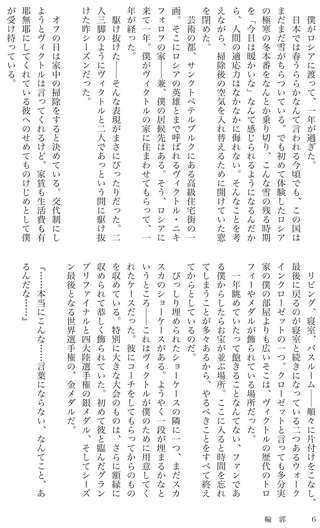 僕がロシアに渡って、一年が過ぎた。
日本では春うららかなんて言われる今頃でも、この国は
まだまだ雪がちらついている。でも初めて体験したロシア
の極寒の冬本番をなんとか乗り切り、こんな雪の残る時期
を「今日は暖かいな」なんて感じられるようになるんだか
ら、人間の適応力はなかなか侮れない。そんなことを考
えながら、掃除後の空気を入れ替えるために開けていた窓
を閉めた。
芸術の都、サンクトペテルブルクにある高級住宅街の一
画。そこにロシアの英雄とまで呼ばれるヴィクトル・ニキ
フォロフの家――兼、僕の居候先はある。そう、ロシアに
来て一年。僕がヴィクトルの家に住まわせてもらって、一
年が経った。
駆け抜けた――そんな表現がまさにぴったりだった。二
人三脚のようにヴィクトルと二人であっという間に駆け抜
けた昨シーズンだった。
オフの日は家中の掃除をすると決めている。交代制にし
ようとヴィクトルは言ってくれるけど、家賃も生活費も有
耶無耶にしてくれている彼へのせめてものけじめとして僕
が受け持っている。
リビング、寝室、バスルーム――順々に片付けをこなし、
最後に戻るのが寝室と続きになっている二つあるウォーク
インクローゼットの一つ。クローゼットと言っても多分実
家の僕の部屋よりも広いそこは、ヴィクトルの歴代のトロ
フィーやメダルが飾られている場所だった。
一年眺めていたって飽きることなんてない、ファンであ
る僕からしたらお宝が並ぶ場所。ここに入ると時間を忘れ
てしまうことが多々あるから、やるべきことをすべて終え
てからとしているのだ。
びっしり埋められたショーケースの隣に一つ、まだスカ
スカのショーケースがある。ようやく一段が埋まるかなと
いうところ――これはヴィクトルが僕のために用意してく
れたケースだった。彼にコーチをしてもらってからのもの
を収めている。特別に大きな大会のものは、さらに額縁に
収められて恭しく飾られていた。初めて彼と臨んだグラン
プリファイナルと四大陸選手権の銀メダル、そしてシーズ
ン最後となる世界選手権の、金メダルだ。
「……本当にこんな……言葉にならない、なんてこと、あ
るんだな……」
輪郭
6